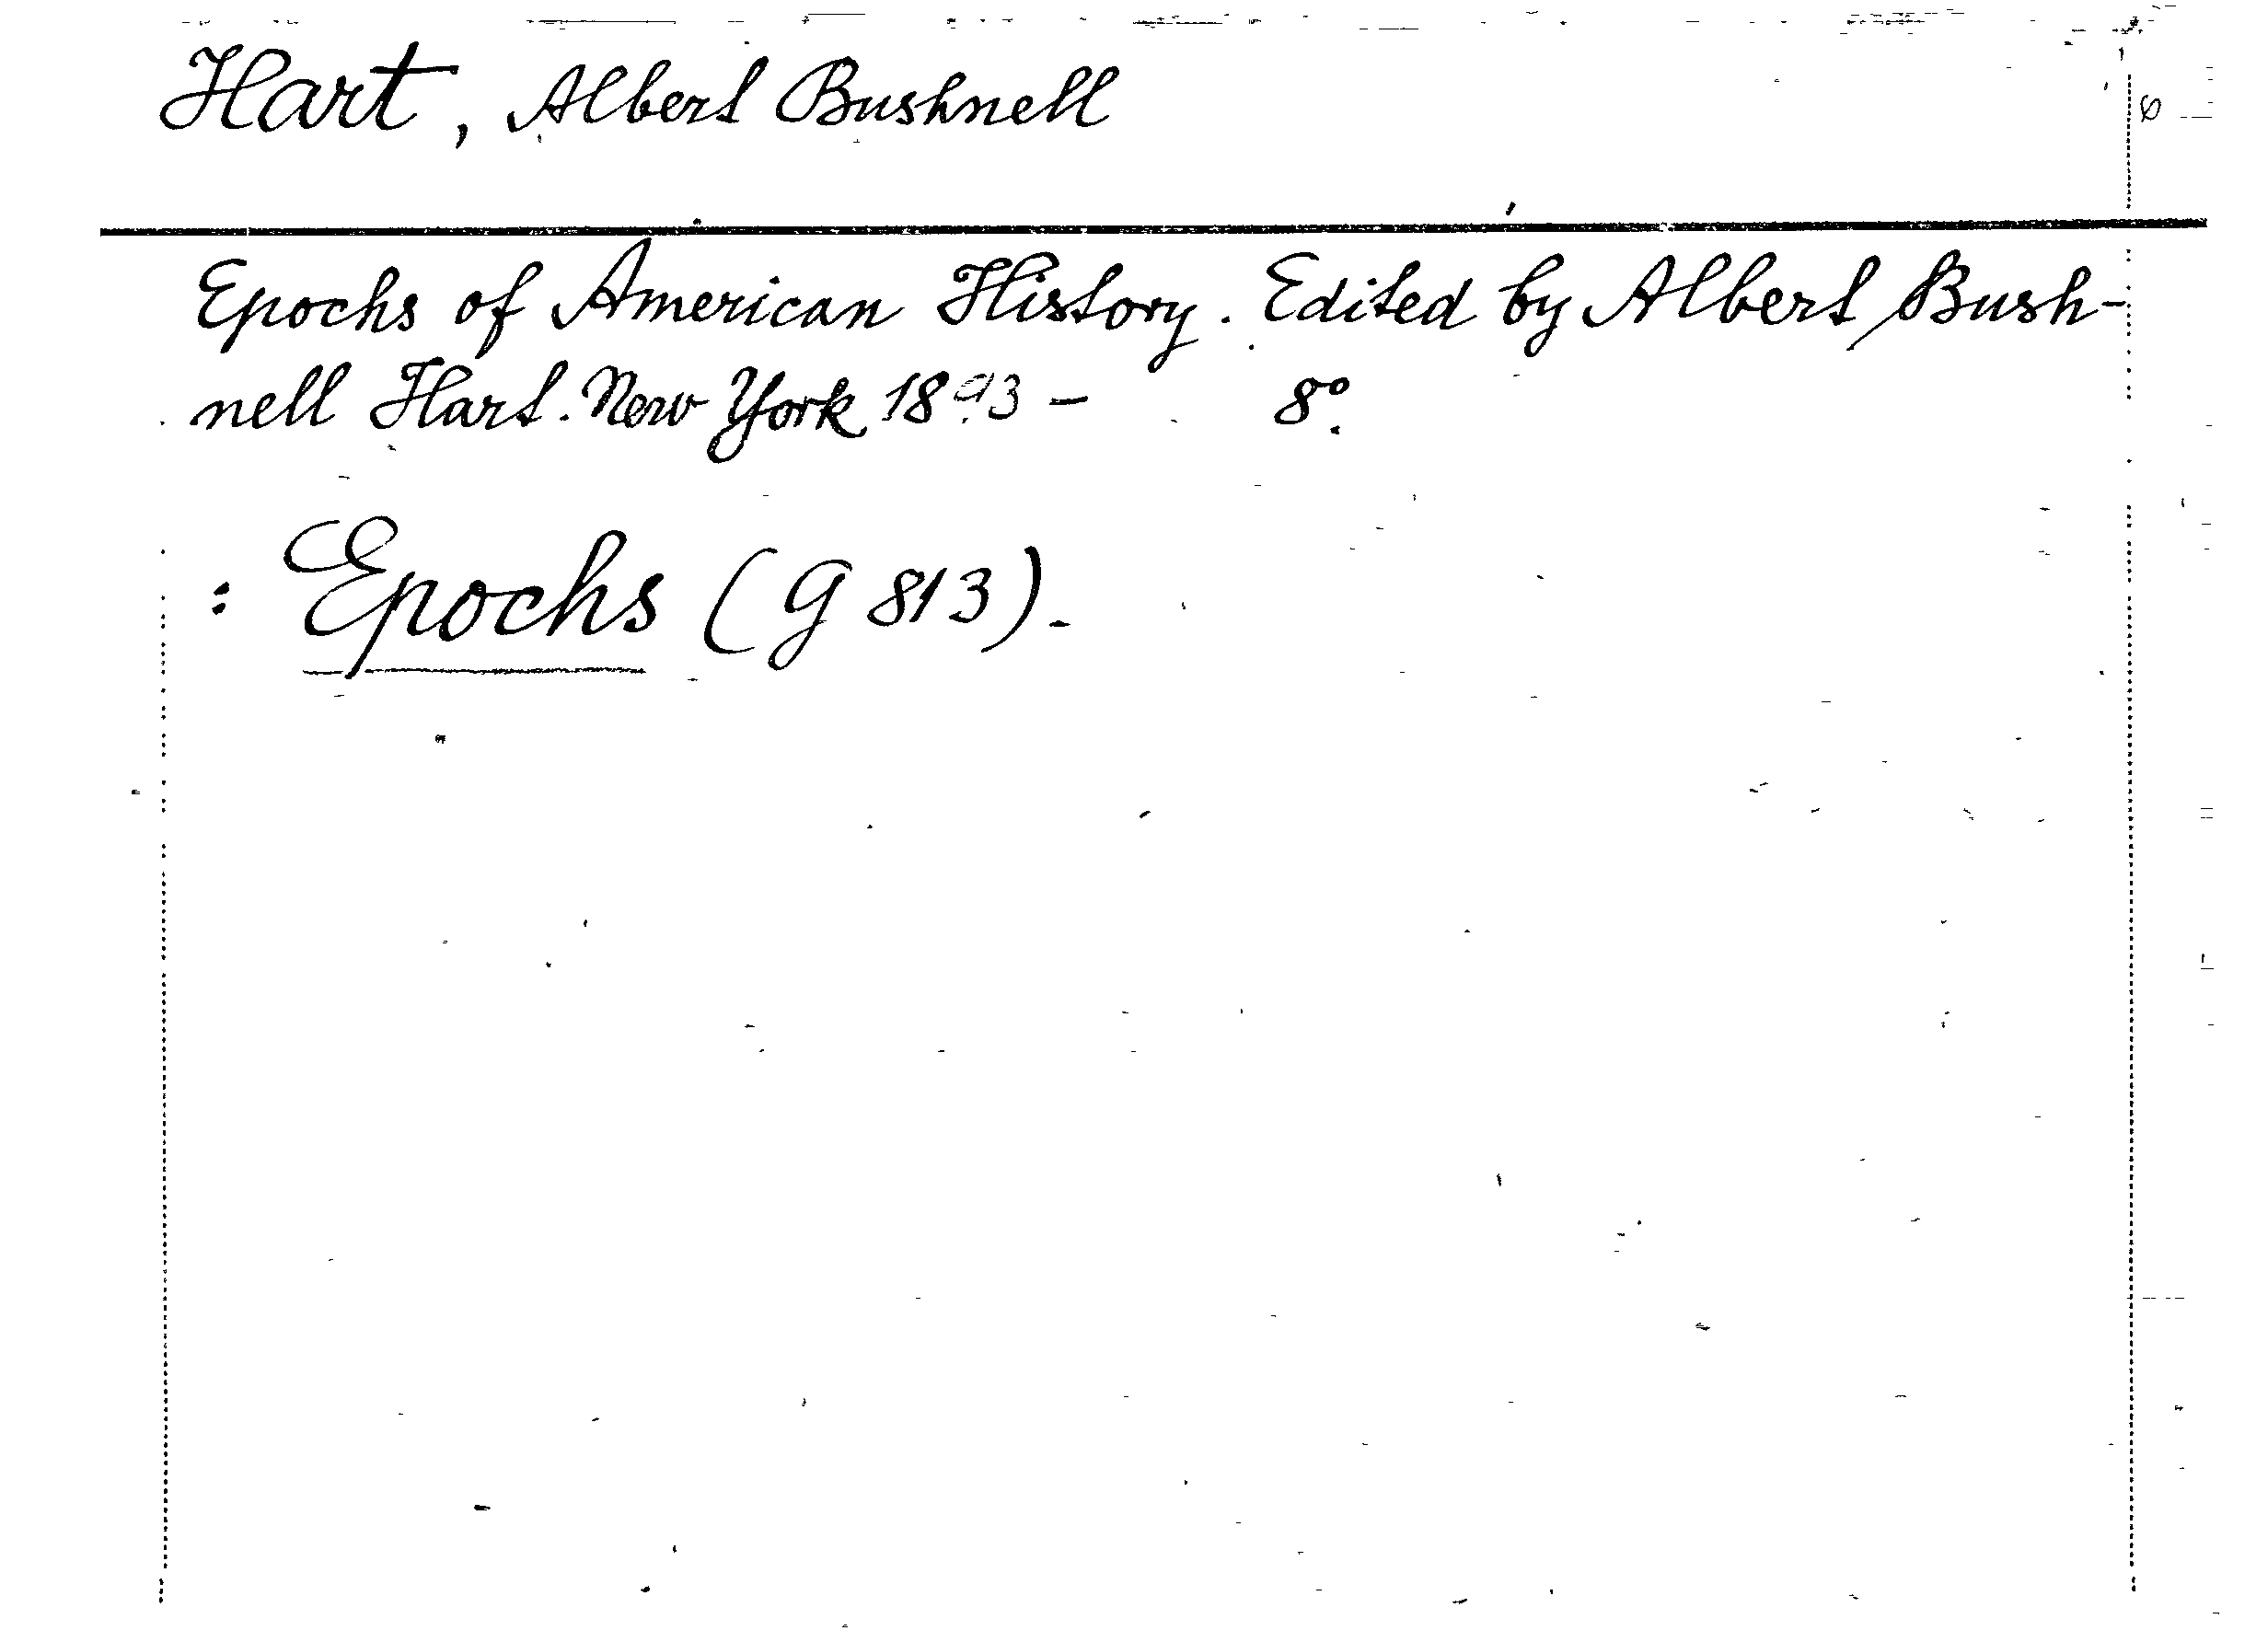 Hart, Albert Bushnell
Epochs of American History. Edited by Albert Bush-
nell Hart. New York 1893- 8°.
: Epochs (G 813).